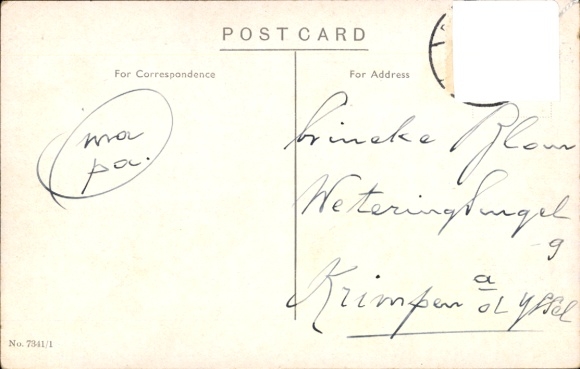 POST CARD
For Correspondence
For Address
ma
pa.
Crineke Blom
Weteringsingel
9
Krimpen a/d Yssel
No. 7341/1